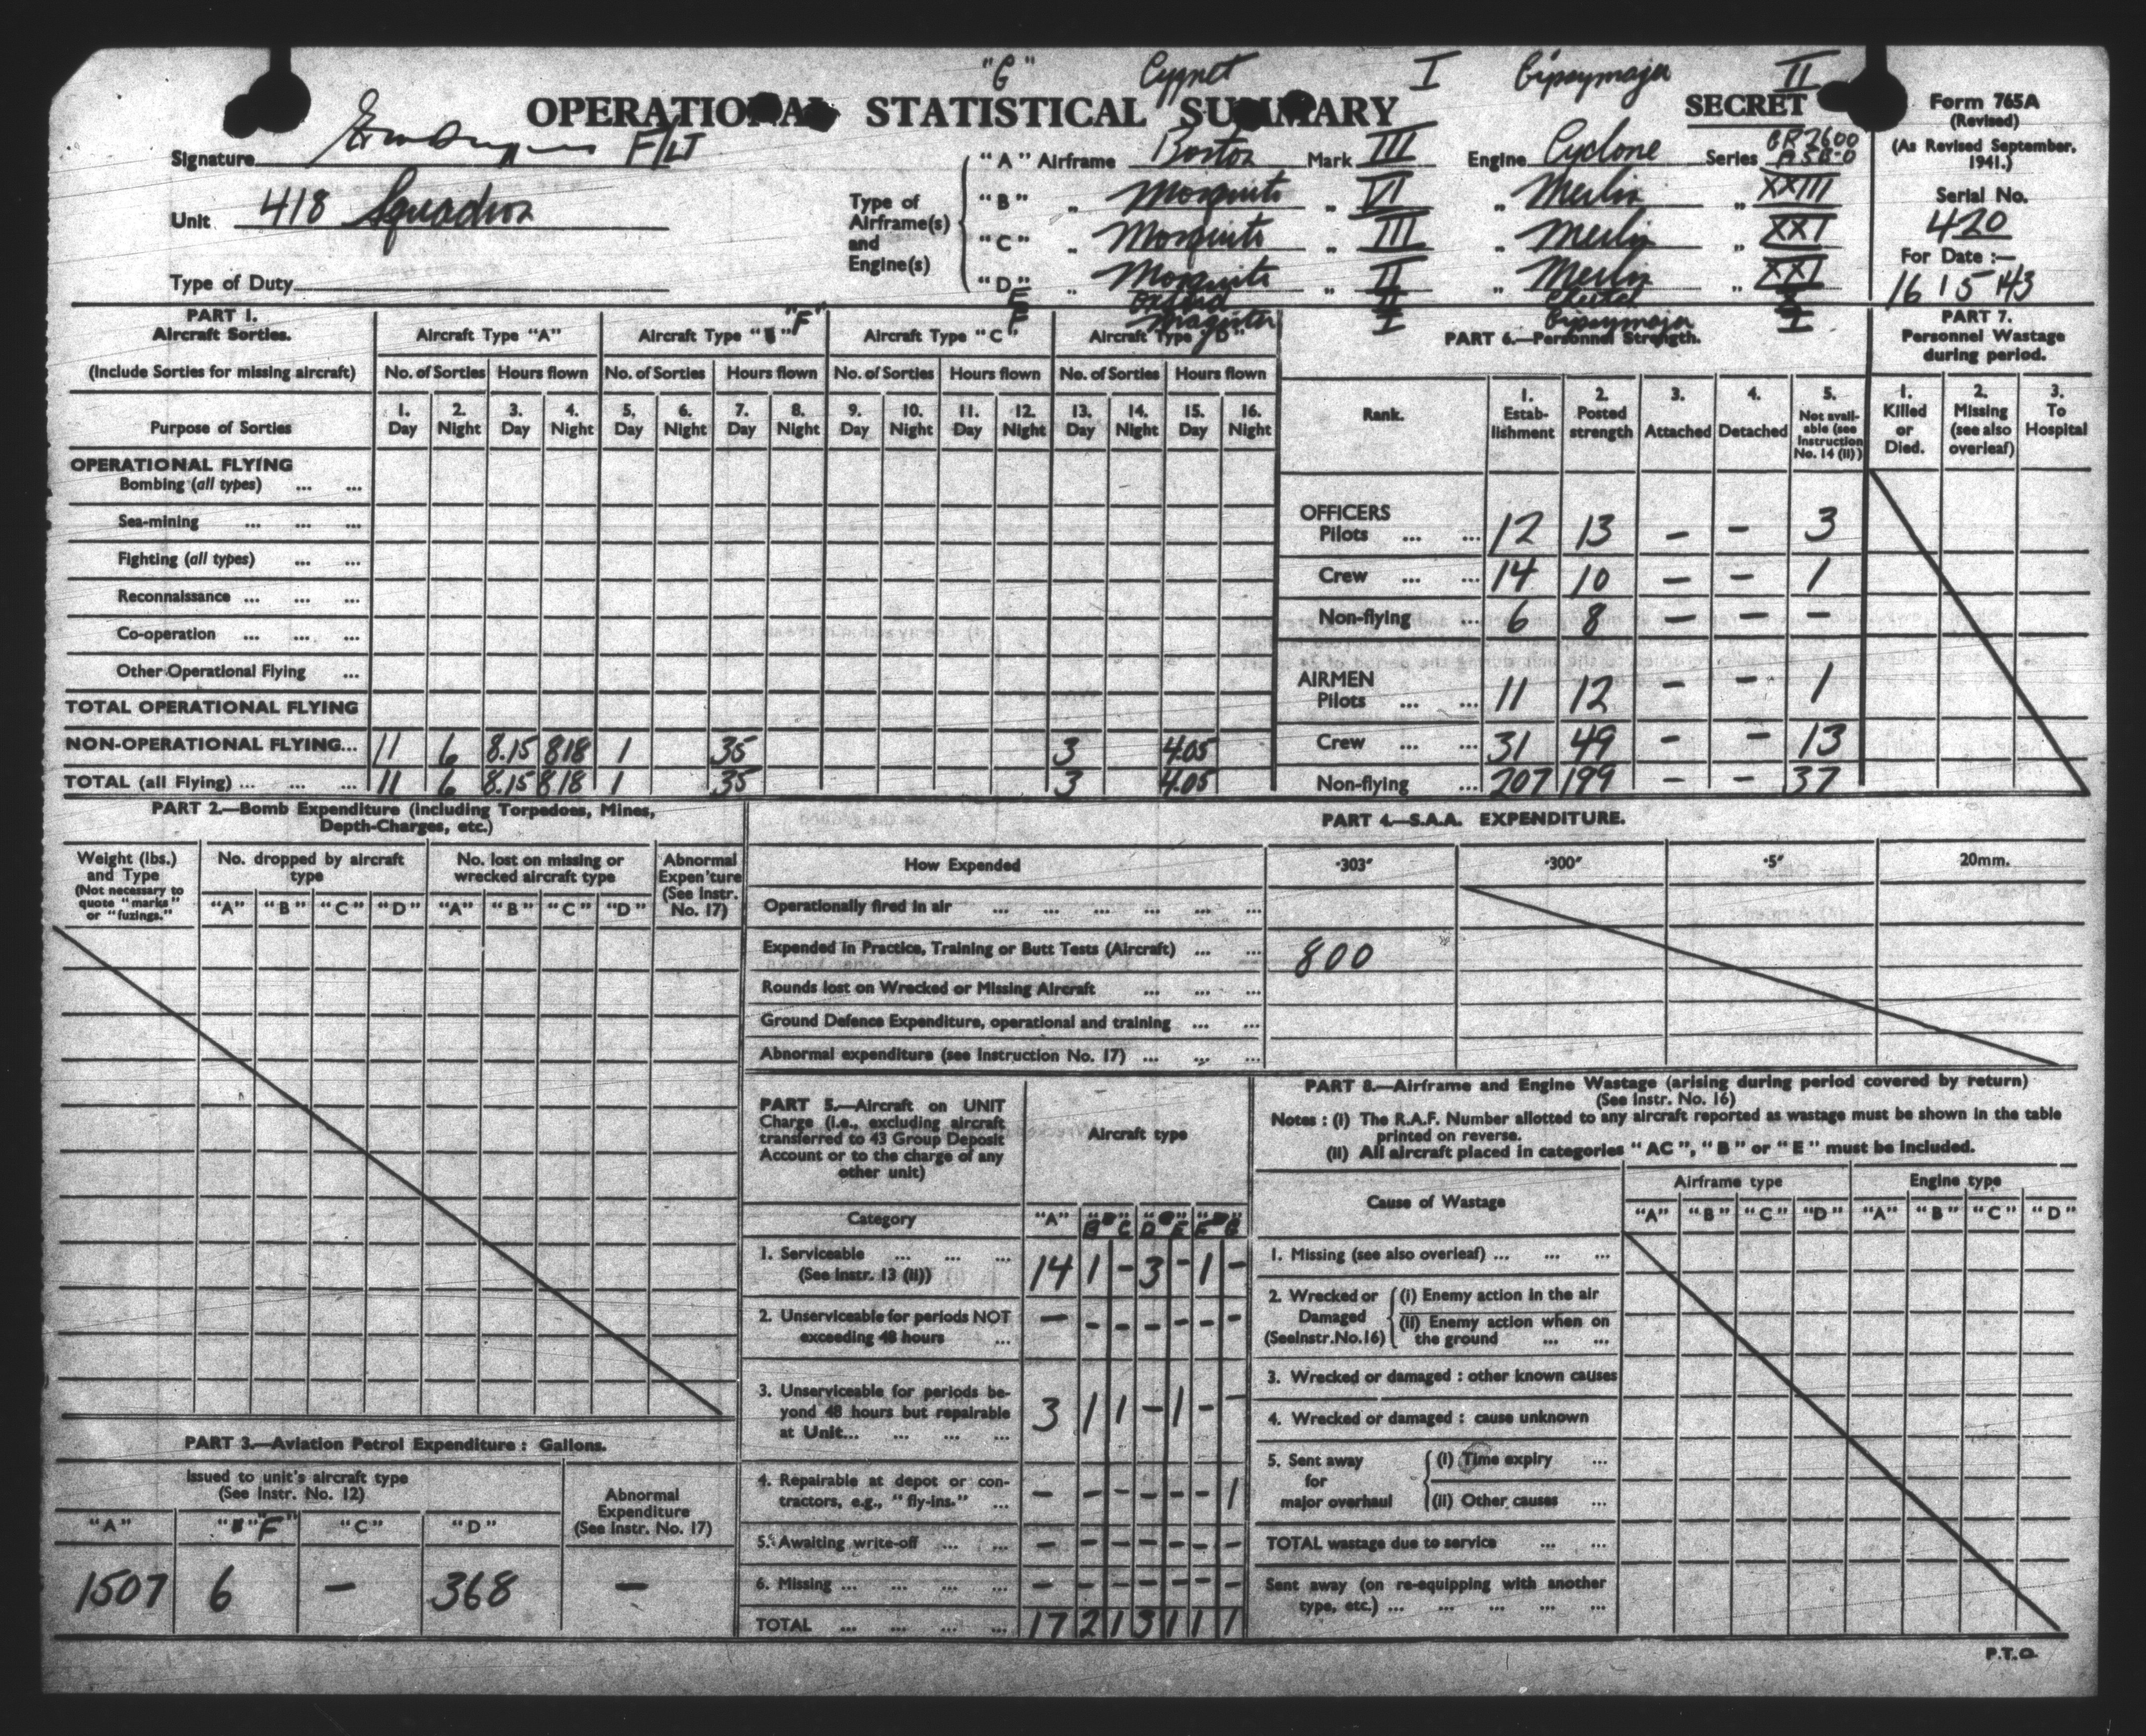 "G" Cygnet I Gipsymajor II
OPERATIONAL STATISTICAL SUMMARY SECRET
Form 765A
(Revised)
(As Revised September, 1941.)
Signature F/LT
Unit 418 Squadron
Type of Duty
Type of Airframe(s) and Engine(s)
"A" Airframe Boston Mark III Engine Cyclone Series GR2600 A5B-0
"B" „ Mosquito „ VI „ Merlin „ XXIII
"C" „ Mosquito „ III „ Merlin „ XXI
"D" „ Mosquito „ II „ Merlin „ XXI
E Oxford II Cheetah X
F Magister I Gipsymajor I
Serial No.
420
For Date :—
16 / 5 /43
PART 1.
Aircraft Sorties.
(Include Sorties for missing aircraft)
Aircraft Type "A" Aircraft Type "F" Aircraft Type "C" Aircraft Type "D"
No. of Sorties Hours flown No. of Sorties Hours flown No. of Sorties Hours flown No. of Sorties Hours flown
Purpose of Sorties
1. Day 2. Night 3. Day 4. Night 5. Day 6. Night 7. Day 8. Night 9. Day 10. Night 11. Day 12. Night 13. Day 14. Night 15. Day 16. Night
OPERATIONAL FLYING
Bombing (all types) ... ...
Sea-mining ... ... ...
Fighting (all types) ... ...
Reconnaissance ... ... ...
Co-operation ... ... ...
Other Operational Flying ...
TOTAL OPERATIONAL FLYING
NON-OPERATIONAL FLYING... 11 6 8.15 818 1 35 3 4.05
TOTAL (all Flying) ... ... ... 11 6 8.15 818 1 35 3 4.05
PART 6.—Personnel Strength.
Rank.
1. Estab-lishment
2. Posted strength
3. Attached
4. Detached
5. Not avail-able (see Instruction No. 14 (ii))
OFFICERS
Pilots ... ... 12 13 – – 3
Crew ... ... 14 10 – – 1
Non-flying ... 6 8 – – –
AIRMEN
Pilots ... ... 11 12 – – 1
Crew ... ... 31 49 – – 13
Non-flying ... 207 199 – – 37
PART 7.
Personnel Wastage during period.
1. Killed or Died.
2. Missing (see also overleaf)
3. To Hospital
PART 2.—Bomb Expenditure (including Torpedoes, Mines,
Depth-Charges, etc.)
Weight (lbs.) and Type
(Not necessary to quote "marks" or "fuzings.")
No. dropped by aircraft type
No. lost on missing or wrecked aircraft type
Abnormal Expen'ture (See Instr. No. 17)
"A" "B" "C" "D" "A" "B" "C" "D"
PART 3.—Aviation Petrol Expenditure : Gallons.
Issued to unit's aircraft type
(See Instr. No. 12)
Abnormal Expenditure
(See Instr. No. 17)
"A" "F" "C" "D"
1507 6 – 368 –
PART 4.—S.A.A. EXPENDITURE.
How Expended ·303" ·300" ·5" 20mm.
Operationally fired in air ... ... ... ... ... ...
Expended in Practice, Training or Butt Tests (Aircraft) ... ... 800
Rounds lost on Wrecked or Missing Aircraft ... ... ...
Ground Defence Expenditure, operational and training ... ...
Abnormal expenditure (see Instruction No. 17) ... ... ...
PART 5.—Aircraft on UNIT
Charge (i.e., excluding aircraft
transferred to 43 Group Deposit
Account or to the charge of any
other unit)
Aircraft type
Category "A" B C D E F G
1. Serviceable ... ... ...
(See Instr. 13 (ii)) 14 1 – 3 – 1 –
2. Unserviceable for periods NOT
exceeding 48 hours ... – – – – – – –
3. Unserviceable for periods be-
yond 48 hours but repairable
at Unit... ... ... ... 3 1 1 – 1 – –
4. Repairable at depot or con-
tractors, e.g., "fly-ins." ... – – – – – – 1
5. Awaiting write-off ... ... – – – – – – –
6. Missing ... ... ... ... – – – – – – –
TOTAL ... ... ... ... 17 2 1 3 1 1 1
PART 8.—Airframe and Engine Wastage (arising during period covered by return)
(See Instr. No. 16)
Notes : (i) The R.A.F. Number allotted to any aircraft reported as wastage must be shown in the table
printed on reverse.
(ii) All aircraft placed in categories "AC", "B" or "E" must be included.
Cause of Wastage
Airframe type Engine type
"A" "B" "C" "D" "A" "B" "C" "D"
1. Missing (see also overleaf) ... ... ...
2. Wrecked or Damaged (See Instr. No. 16)
(i) Enemy action in the air
(ii) Enemy action when on
the ground ... ...
3. Wrecked or damaged : other known causes
4. Wrecked or damaged : cause unknown
5. Sent away for major overhaul
(i) Time expiry ...
(ii) Other causes ...
TOTAL wastage due to service ... ...
Sent away (on re-equipping with another
type, etc.) ... ... ... ... ...
P.T.O.